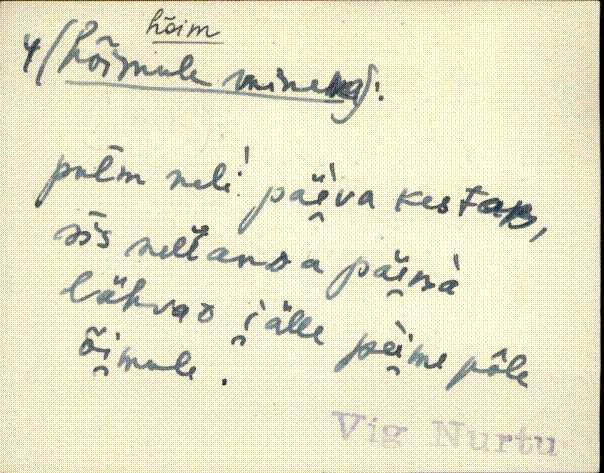 hõim
4/ (hõimule minema):
pulm neli päi̯va kestaʙ,
sīs nellanda päi̯vä
lähvaᴅ i̯älle pei̯me pōle
õi̯mule.
Vig Nurtu